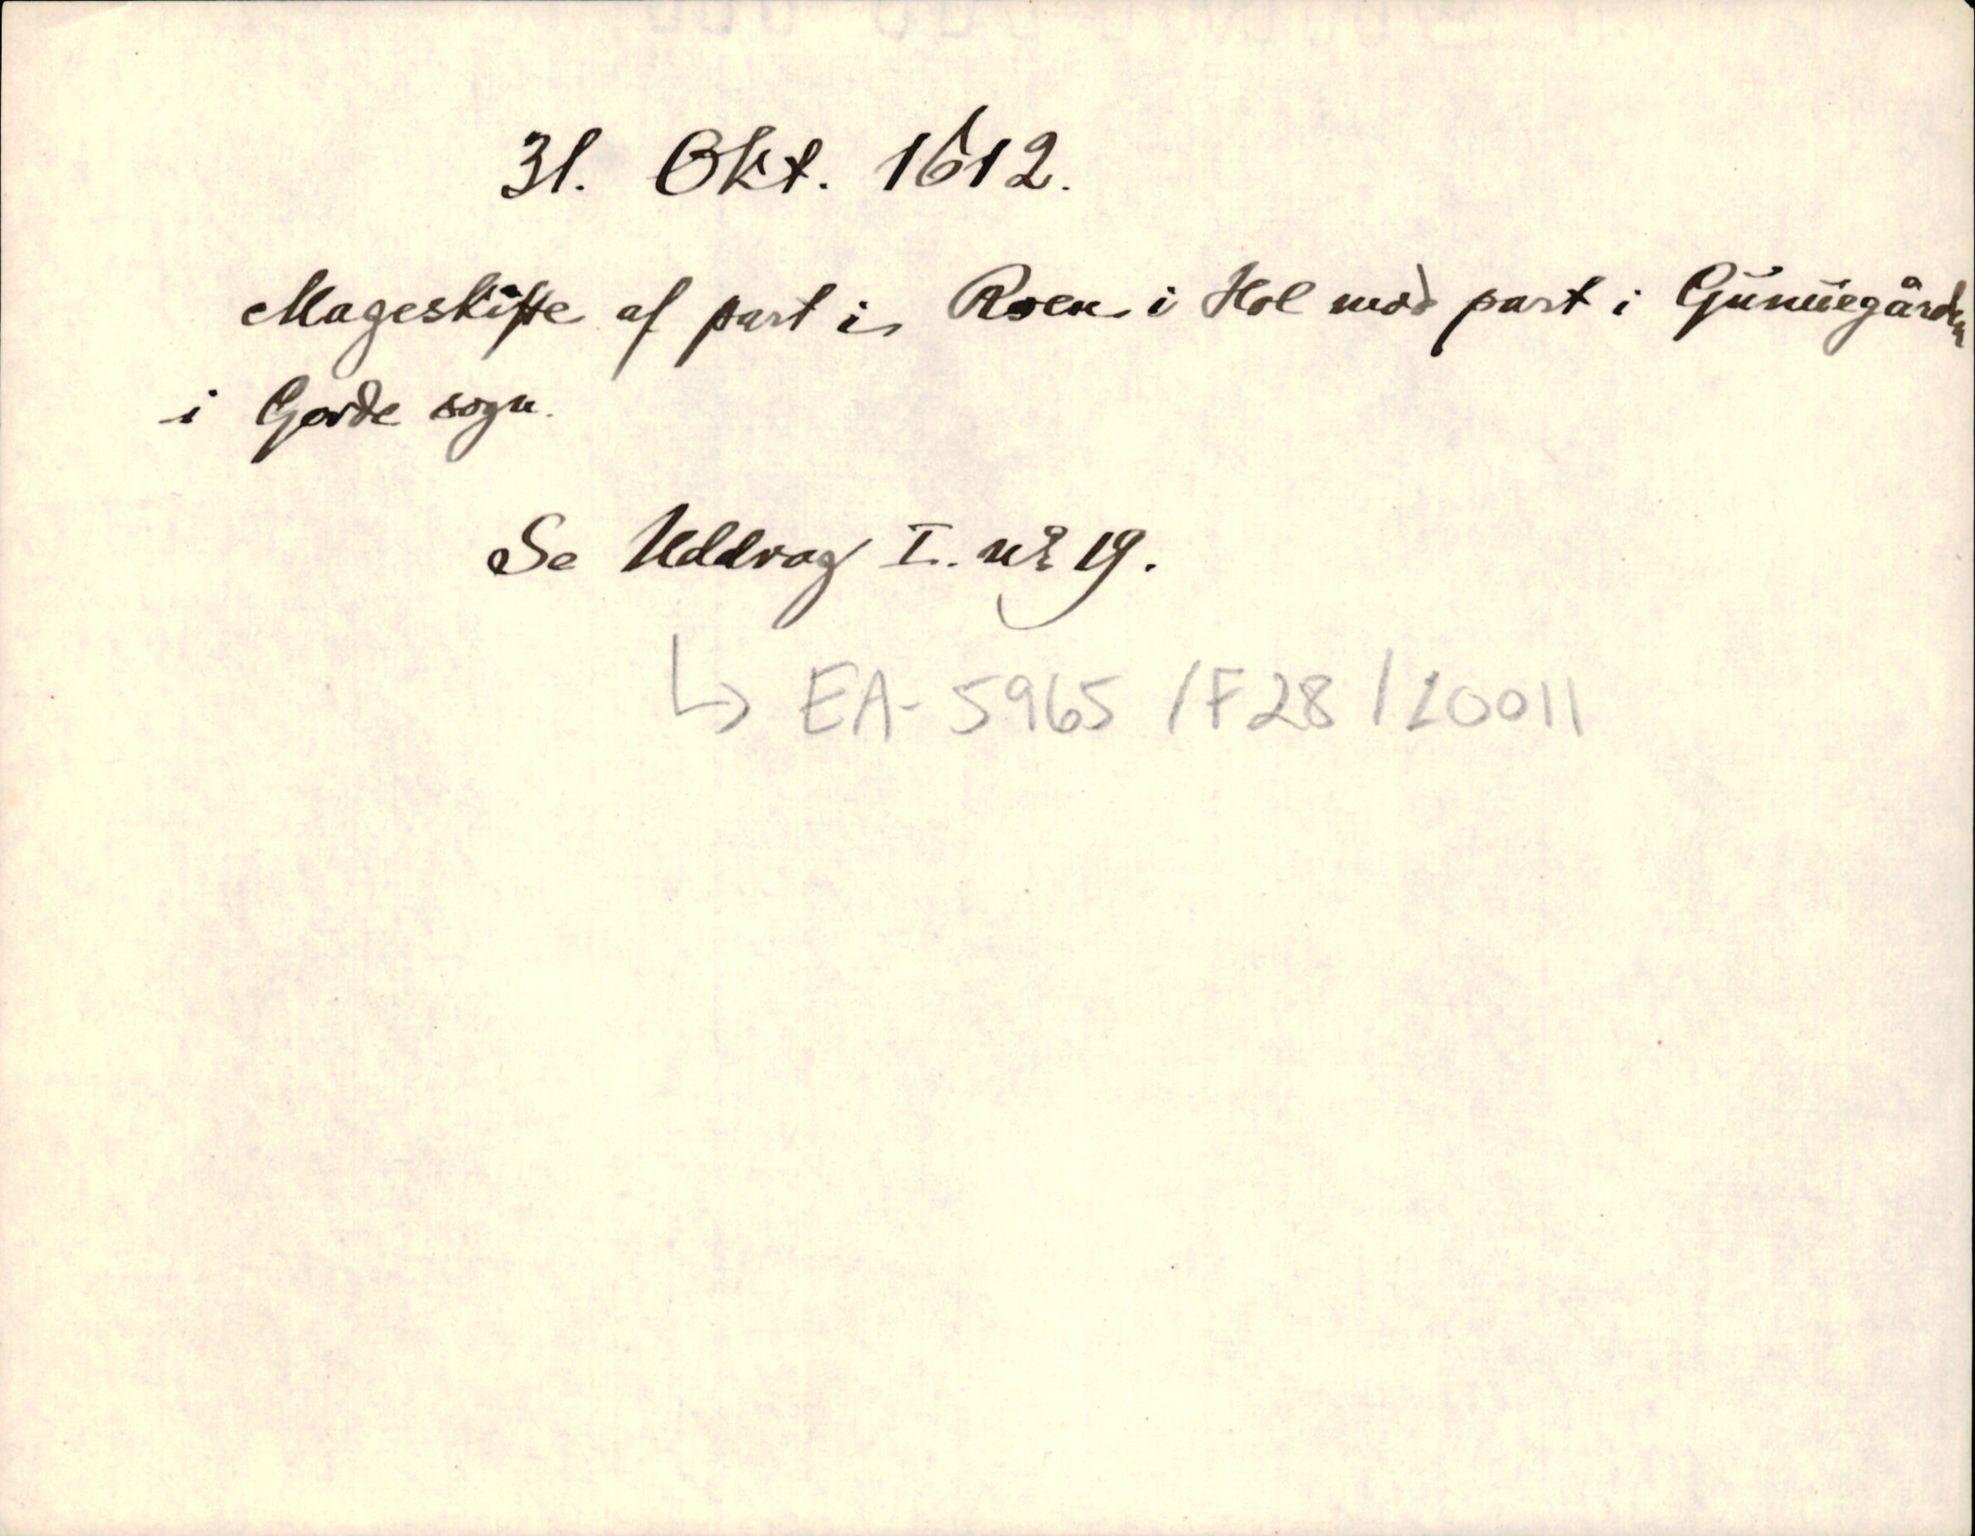 31. Okt. 1612.
Mageskifte af part i Roen i Hol mod part i Gunnegården
i Gorde sogn.
Se Uddrag I. nr 19.
↳ EA-5965 /F28 / L0011